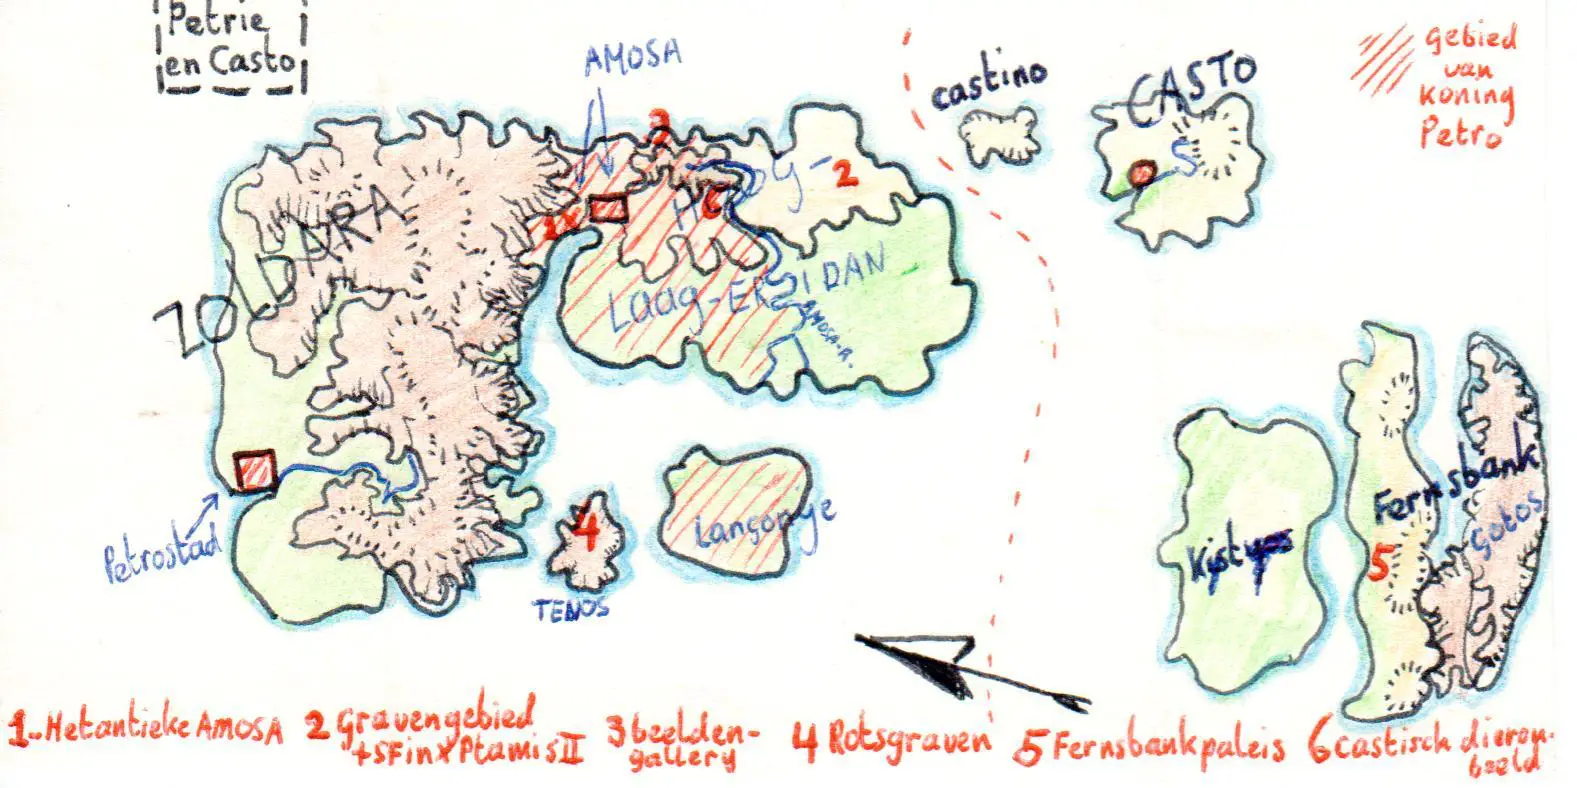 Petrie
en Casto
AMOSA
castino
CASTO
gebied
van
koning
Petro
3
2
1
6
ZOLDARA
Hoog-
Laag-ERIDAN
AMOSA-R.
Petrostad
4
TENOS
Langonye
Kistyos
Fernsbank
Gotos
5
1..Hetantieke AMOSA
2 Gravengebied
+SFinx Ptamis II
3 beelden-
gallery
4 Rotsgraven
5 Fernsbankpaleis
6 Castisch dieren-
beeld